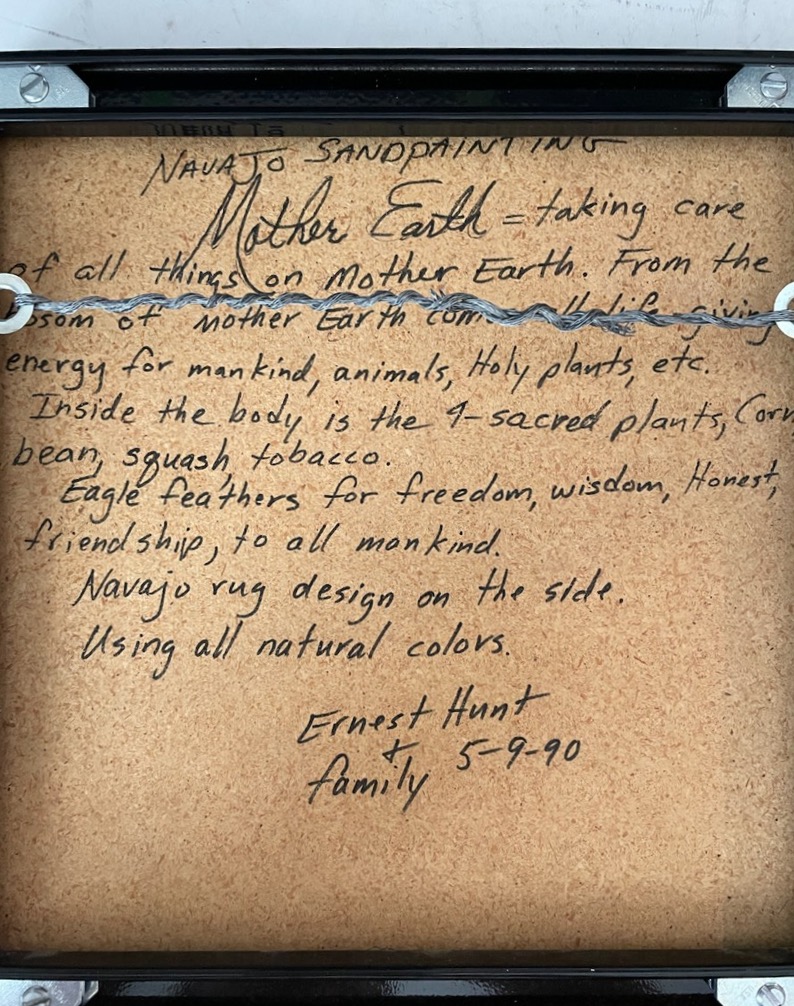 NAVAJO SANDPAINTING
Mother Earth = taking care
of all things on Mother Earth. From the
bosom of Mother Earth comes all life giving
energy for mankind, animals, Holy plants, etc.
Inside the body is the 4-sacred plants, Corn
bean, squash, tobacco.
Eagle feathers for freedom, wisdom, Honest,
friendship, to all mankind.
Navajo rug design on the side.
Using all natural colors.
Ernest Hunt
+
family 5-9-90